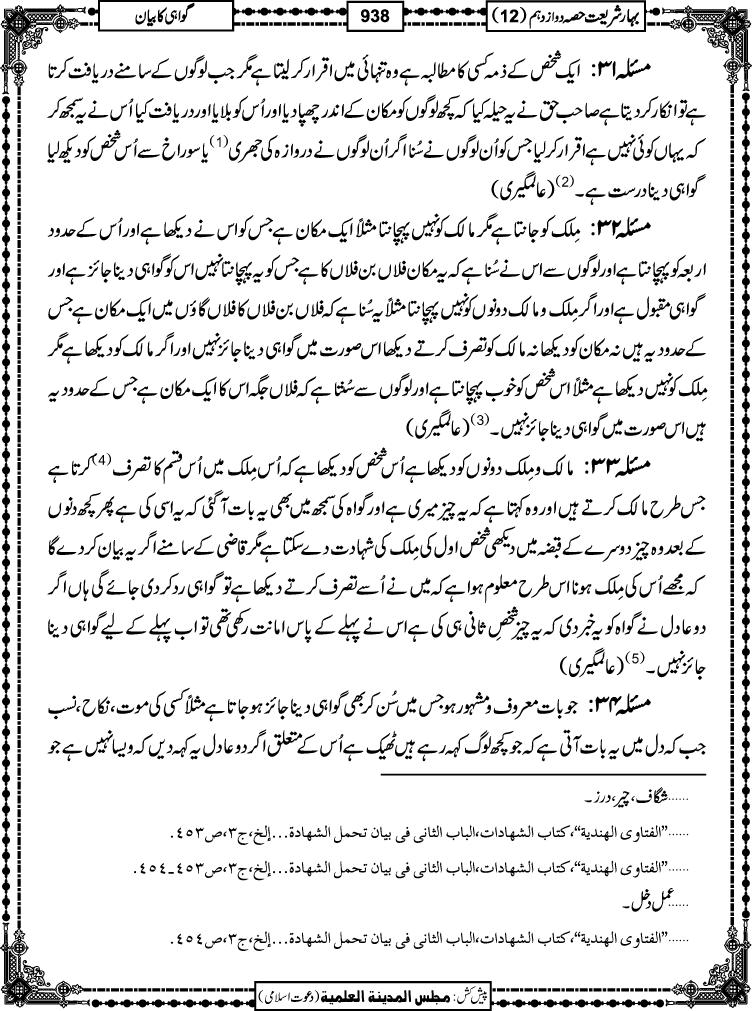 بہار شریعت حصہ دوازدہم (12)
938
گواہی کا بیان
مسئلہ ۳۱: ایک شخص کے ذمہ کسی کا مطالبہ ہے وہ تنہائی میں اقرار کر لیتا ہے مگر جب لوگوں کے سامنے دریافت کرتا
ہے تو انکار کر دیتا ہے صاحب حق نے یہ حیلہ کیا کہ کچھ لوگوں کو مکان کے اندر چھپا دیا اور اُس کو بلایا اور دریافت کیا اُس نے یہ سمجھ کر
کہ یہاں کوئی نہیں ہے اقرار کر لیا جس کو اُن لوگوں نے سُنا اگر اُن لوگوں نے دروازہ کی جھری (1) یا سوراخ سے اُس شخص کو دیکھ لیا
گواہی دینا درست ہے۔ (2) (عالمگیری)
مسئلہ ۳۲: مِلک کو جانتا ہے مگر مالک کو نہیں پہچانتا مثلاً ایک مکان ہے جس کو اس نے دیکھا ہے اور اُس کے حدود
اربعہ کو پہچانتا ہے اور لوگوں سے اس نے سُنا ہے کہ یہ مکان فلاں بن فلاں کا ہے جس کو یہ پہچانتا نہیں اس کو گواہی دینا جائز ہے اور
گواہی مقبول ہے اور اگر مِلک و مالک دونوں کو نہیں پہچانتا مثلاً یہ سُنا ہے کہ فلاں بن فلاں کا فلاں گاؤں میں ایک مکان ہے جس
کے حدود یہ ہیں نہ مکان کو دیکھا نہ مالک کو تصرف کرتے دیکھا اس صورت میں گواہی دینا جائز نہیں اور اگر مالک کو دیکھا ہے مگر
مِلک کو نہیں دیکھا ہے مثلاً اس شخص کو خوب پہچانتا ہے اور لوگوں سے سُنتا ہے کہ فلاں جگہ اس کا ایک مکان ہے جس کے حدود یہ
ہیں اس صورت میں گواہی دینا جائز نہیں۔ (3) (عالمگیری)
مسئلہ ۳۳: مالک و مِلک دونوں کو دیکھا ہے اُس شخص کو دیکھا ہے کہ اُس مِلک میں اُس قسم کا تصرف (4) کرتا ہے
جس طرح مالک کرتے ہیں اور وہ کہتا ہے کہ یہ چیز میری ہے اور گواہ کی سمجھ میں بھی یہ بات آگئی کہ یہ اسی کی ہے پھر کچھ دنوں
کے بعد وہ چیز دوسرے کے قبضہ میں دیکھی شخص اول کی مِلک کی شہادت دے سکتا ہے مگر قاضی کے سامنے اگر یہ بیان کر دے گا
کہ مجھے اُس کی مِلک ہونا اس طرح معلوم ہوا ہے کہ میں نے اُسے تصرف کرتے دیکھا ہے تو گواہی رد کر دی جائے گی ہاں اگر
دو عادل نے گواہ کو یہ خبر دی کہ یہ چیز شخصِ ثانی ہی کی ہے اس نے پہلے کے پاس امانت رکھی تھی تو اب پہلے کے لیے گواہی دینا
جائز نہیں۔ (5) (عالمگیری)
مسئلہ ۳۴: جو بات معروف و مشہور ہو جس میں سُن کر بھی گواہی دینا جائز ہو جاتا ہے مثلاً کسی کی موت، نکاح، نسب
جب کہ دل میں یہ بات آتی ہے کہ جو کچھ لوگ کہہ رہے ہیں ٹھیک ہے اُس کے متعلق اگر دو عادل یہ کہہ دیں کہ ویسا نہیں ہے جو
......شگاف، چیر، درز۔
......”الفتاوی الهندیة“، کتاب الشهادات، الباب الثانی فی بیان تحمل الشهادة...إلخ، ج۳، ص۴۵۳.
......”الفتاوی الهندیة“، کتاب الشهادات، الباب الثانی فی بیان تحمل الشهادة...إلخ، ج۳، ص۴۵۳۔۴۵۴.
......عمل دخل۔
......”الفتاوی الهندیة“، کتاب الشهادات، الباب الثانی فی بیان تحمل الشهادة...إلخ، ج۳، ص۴۵۴.
پیش کش: مجلس المدینة العلمیة (دعوت اسلامی)